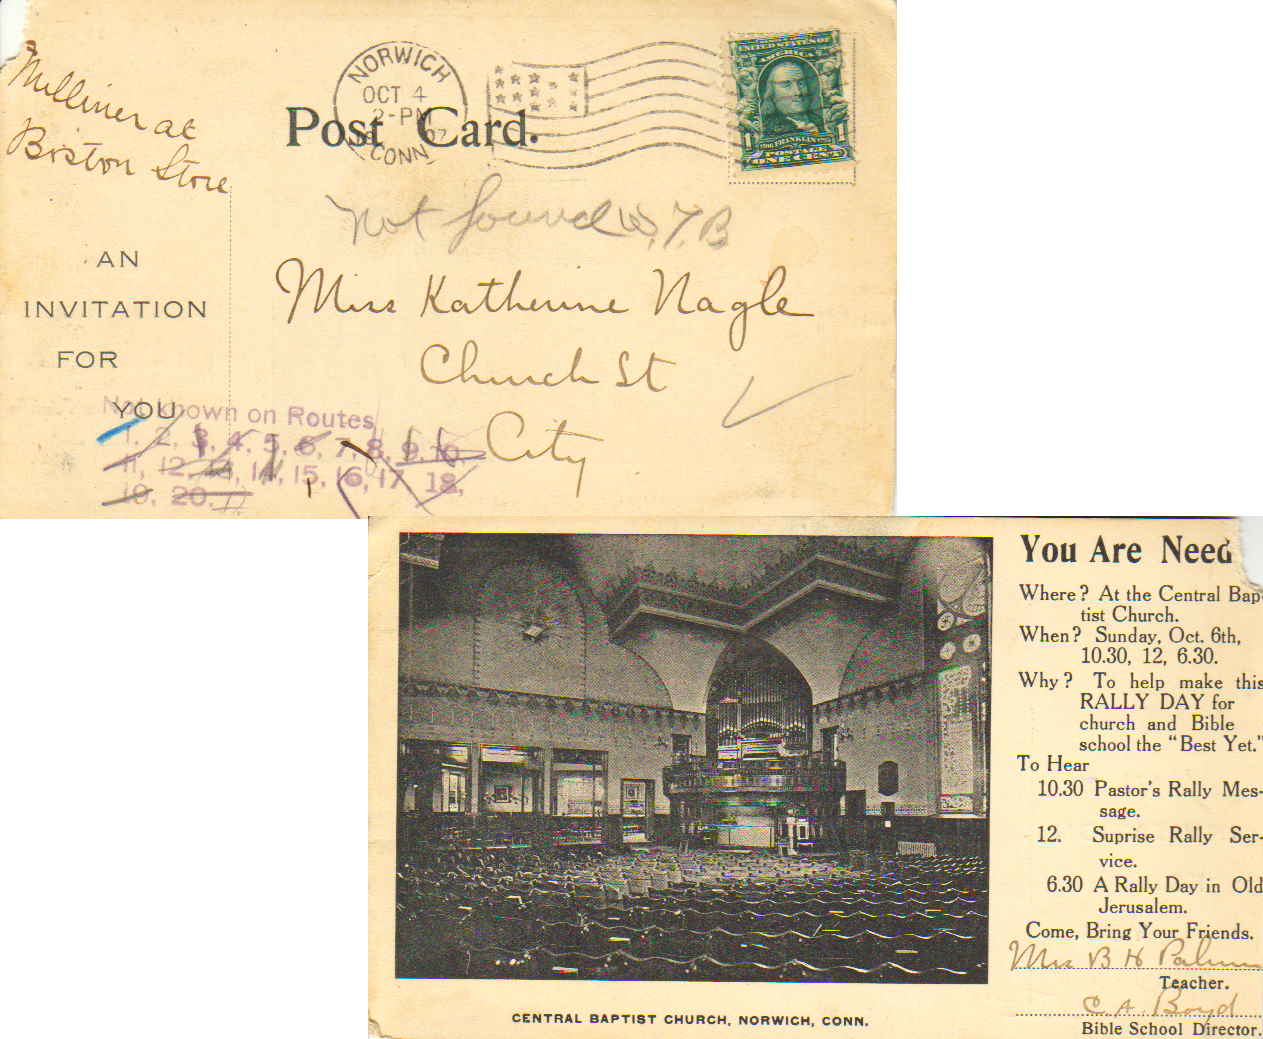 Milliner at
Boston Store
NORWICH
OCT 4
2-PM
07
CONN.
UNITED STATES OF
AMERICA
FRANKLIN
POSTAGE
1 ONE CENT 1
Post Card.
Not found W.T.B
AN
INVITATION
FOR
YOU
Miss Katherine Nagle
Church St
City
Not known on Routes
1, 2, 3, 4, 5, 6, 7, 8, 9, 10,
11, 12, 14, 15, 16, 17 18,
19, 20.
You Are Need
Where? At the Central Bap-
tist Church.
When? Sunday, Oct. 6th,
10.30, 12, 6.30.
Why? To help make this
RALLY DAY for
church and Bible
school the "Best Yet."
To Hear
10.30 Pastor's Rally Mes-
sage.
12. Suprise Rally Ser-
vice.
6.30 A Rally Day in Old
Jerusalem.
Come, Bring Your Friends.
Mrs B H Palmer
Teacher.
C. A. Boyd
Bible School Director.
CENTRAL BAPTIST CHURCH, NORWICH, CONN.